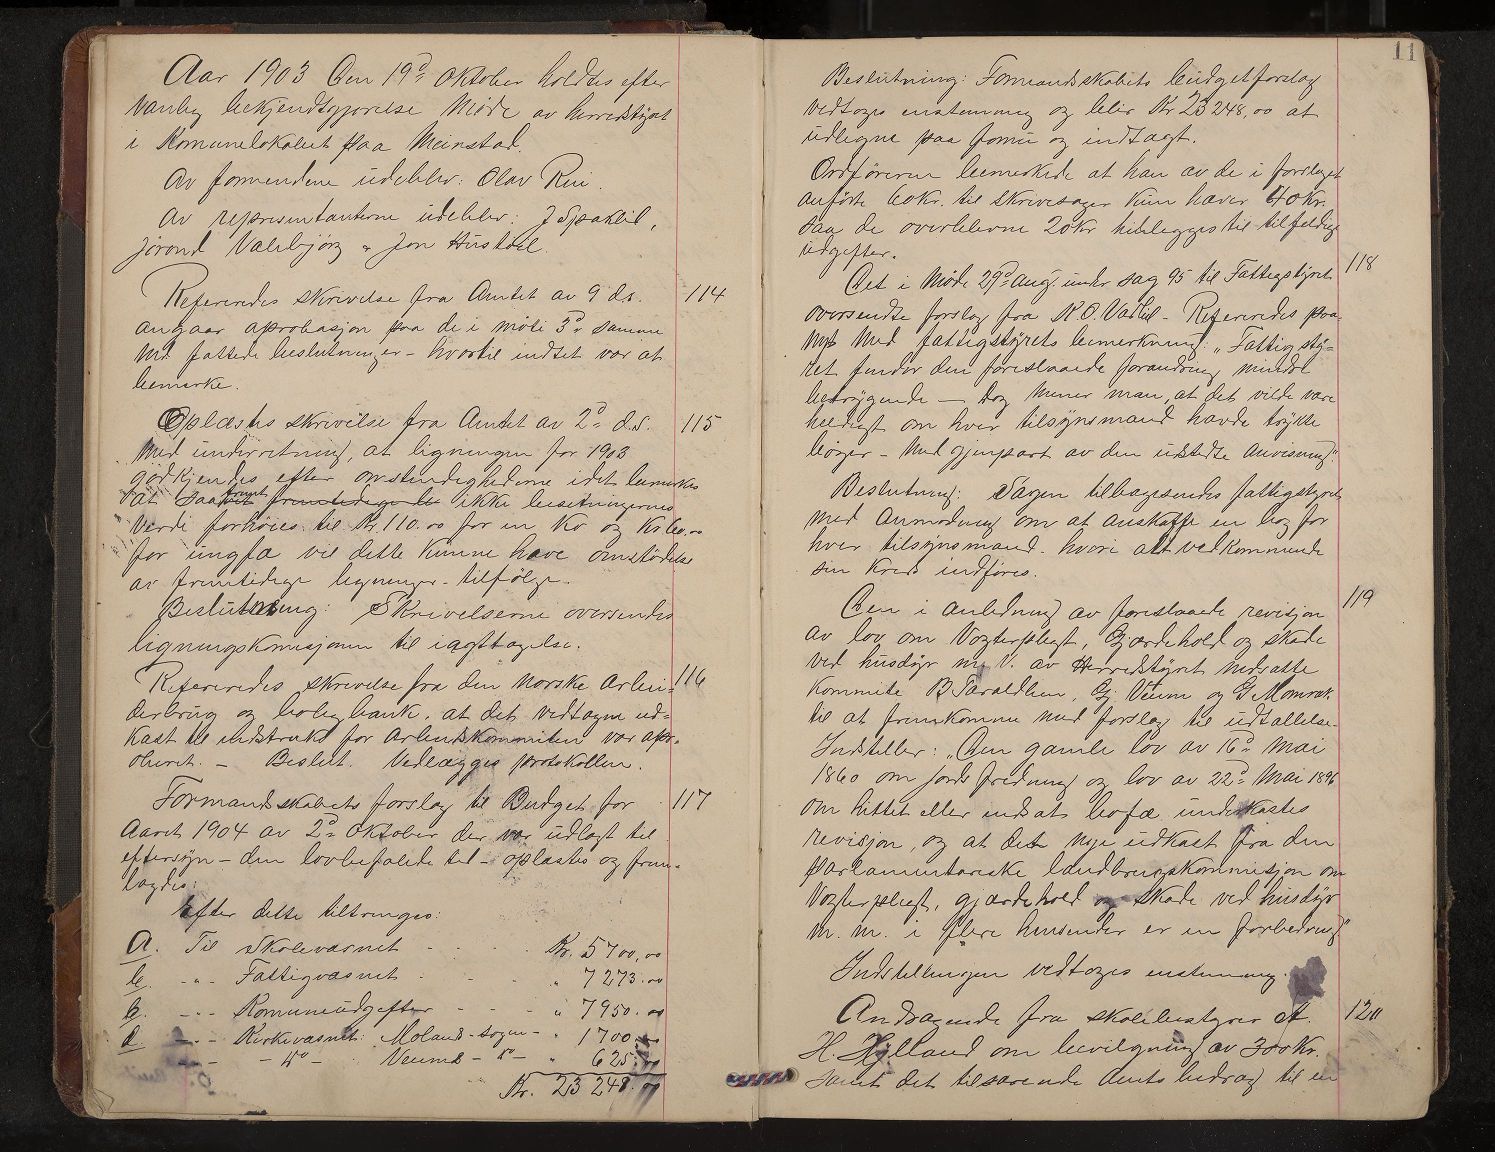 Aar 1903 den 19de oktober holdtes efter
vanlig bekjendtgjørelse Møde av herredstyret
i Komunelokalet paa Meinstad.
Av formendene udeblev: Olav Rui.
Av representanterne udeblev: J Spaklid,
Jørond Valebjørg & Jon Hustvel.
Refereredes skrivelse fra Amtet av 9 ds. 114
angaar aprobasjon paa de i møte 3de samme
Md fattede beslutninger - hvortil indtet var at
bemerke.
Oplæstes skrivelse fra Amtet av 2de d.s. 115
med underretning, at ligningen for 1903
godkjendes efter omstendighederne idet bemerkes
at saafremt ikke besetningernes
verdi forhøies til Kr 110.00 for en Ko og Kr 60.00
for ungfæ vil dette kunne have omstødelse
av fremtidige ligninger tilfølge.
Beslutning: Skrivelserne oversendes
ligningskomisjonen til iagttagelse.
Refereredes skrivelse fra den norske Arbei= 116
derbrug og boligbank, at det vedtagne ud=
kast til indstruks for Arbeidskommiten var apr=
oberet. - Beslut. Vedlægges protokollen.
Formandskabets forslag til Budget for 117
Aaret 1904 av 2de oktober der var udlagt til
eftersyn - den lovbefalede tid - oplæstes og frem=
lagdes:
Efter dette tiltrenges:
A. Til Skolevæsnet Kr. 5700,00
b. -"- Fattigvæsnet " 7273.00
C. -"- Komuneudgefter " 7950.00
d. -"- Kirkevæsnet: Moland sogn " 1700.00
- do - Veume - do - " 625.00
Kr. 23 248.00
11
Beslutning: Formandsskabets budgetforslag
vedtoges enstemmig og blir Kr 23 248,00 at
udligne paa formue og indtægt.
Ordføreren bemerkede at han av de i forslaget
anførte 60 kr. til skrivesager kun hæver 40 kr.
saa de overblevne 20 kr henlegges til tilfeldige
udgefter.
Det i Møde 29de aug. under sag 95 til Fattigstyret 118
oversendte forslag fra K O. Vaslid - Refereredes paa
nyt med fattigstyrets bemerkning: "Fattigsty=
ret finder den foreslaaede forandring mindre
betrygende - dog mener man, at det vilde være
heldigt om hver tilsynsmand havde trykte
bøger - med gjenpart av den utstedte anvisning".
Beslutning: Sagen tilbagesendes fattigstyret
med Anmodning om at anskaffe en bog for
hver tilsynsmand. hvori alt vedkommende
sin kreds indføres.
Den i anledning av foreslaaede revisjon 119
av lov om Vogterpligt, Gjærdehold og skade
ved husdyr m. v. av Herredstyret nedsatte
Kommite B Taraldlien, Gj. Veum og G Momrak
til at fremkomme med forslag til udtallelse.
Indstiller: "Den gamle lov av 16de Mai
1860 om jords fredning og lov av 22de Mai 1896
om hittet eller indsat bofæ underkastes
revisjon, og at det nye udkast fra den
parlamentariske landbrugskommisjon om
Vogterpligt, gjærdehold og skade ved husdyr
m. m. i flere henseender er en forbedring"
Indstillingen vedtoges enstemmig.
Andragende fra skolebestyrer A. 120
H. Hylland om bevilgning av 300 Kr.
samt det tilsvarende Amtsbidrag til en